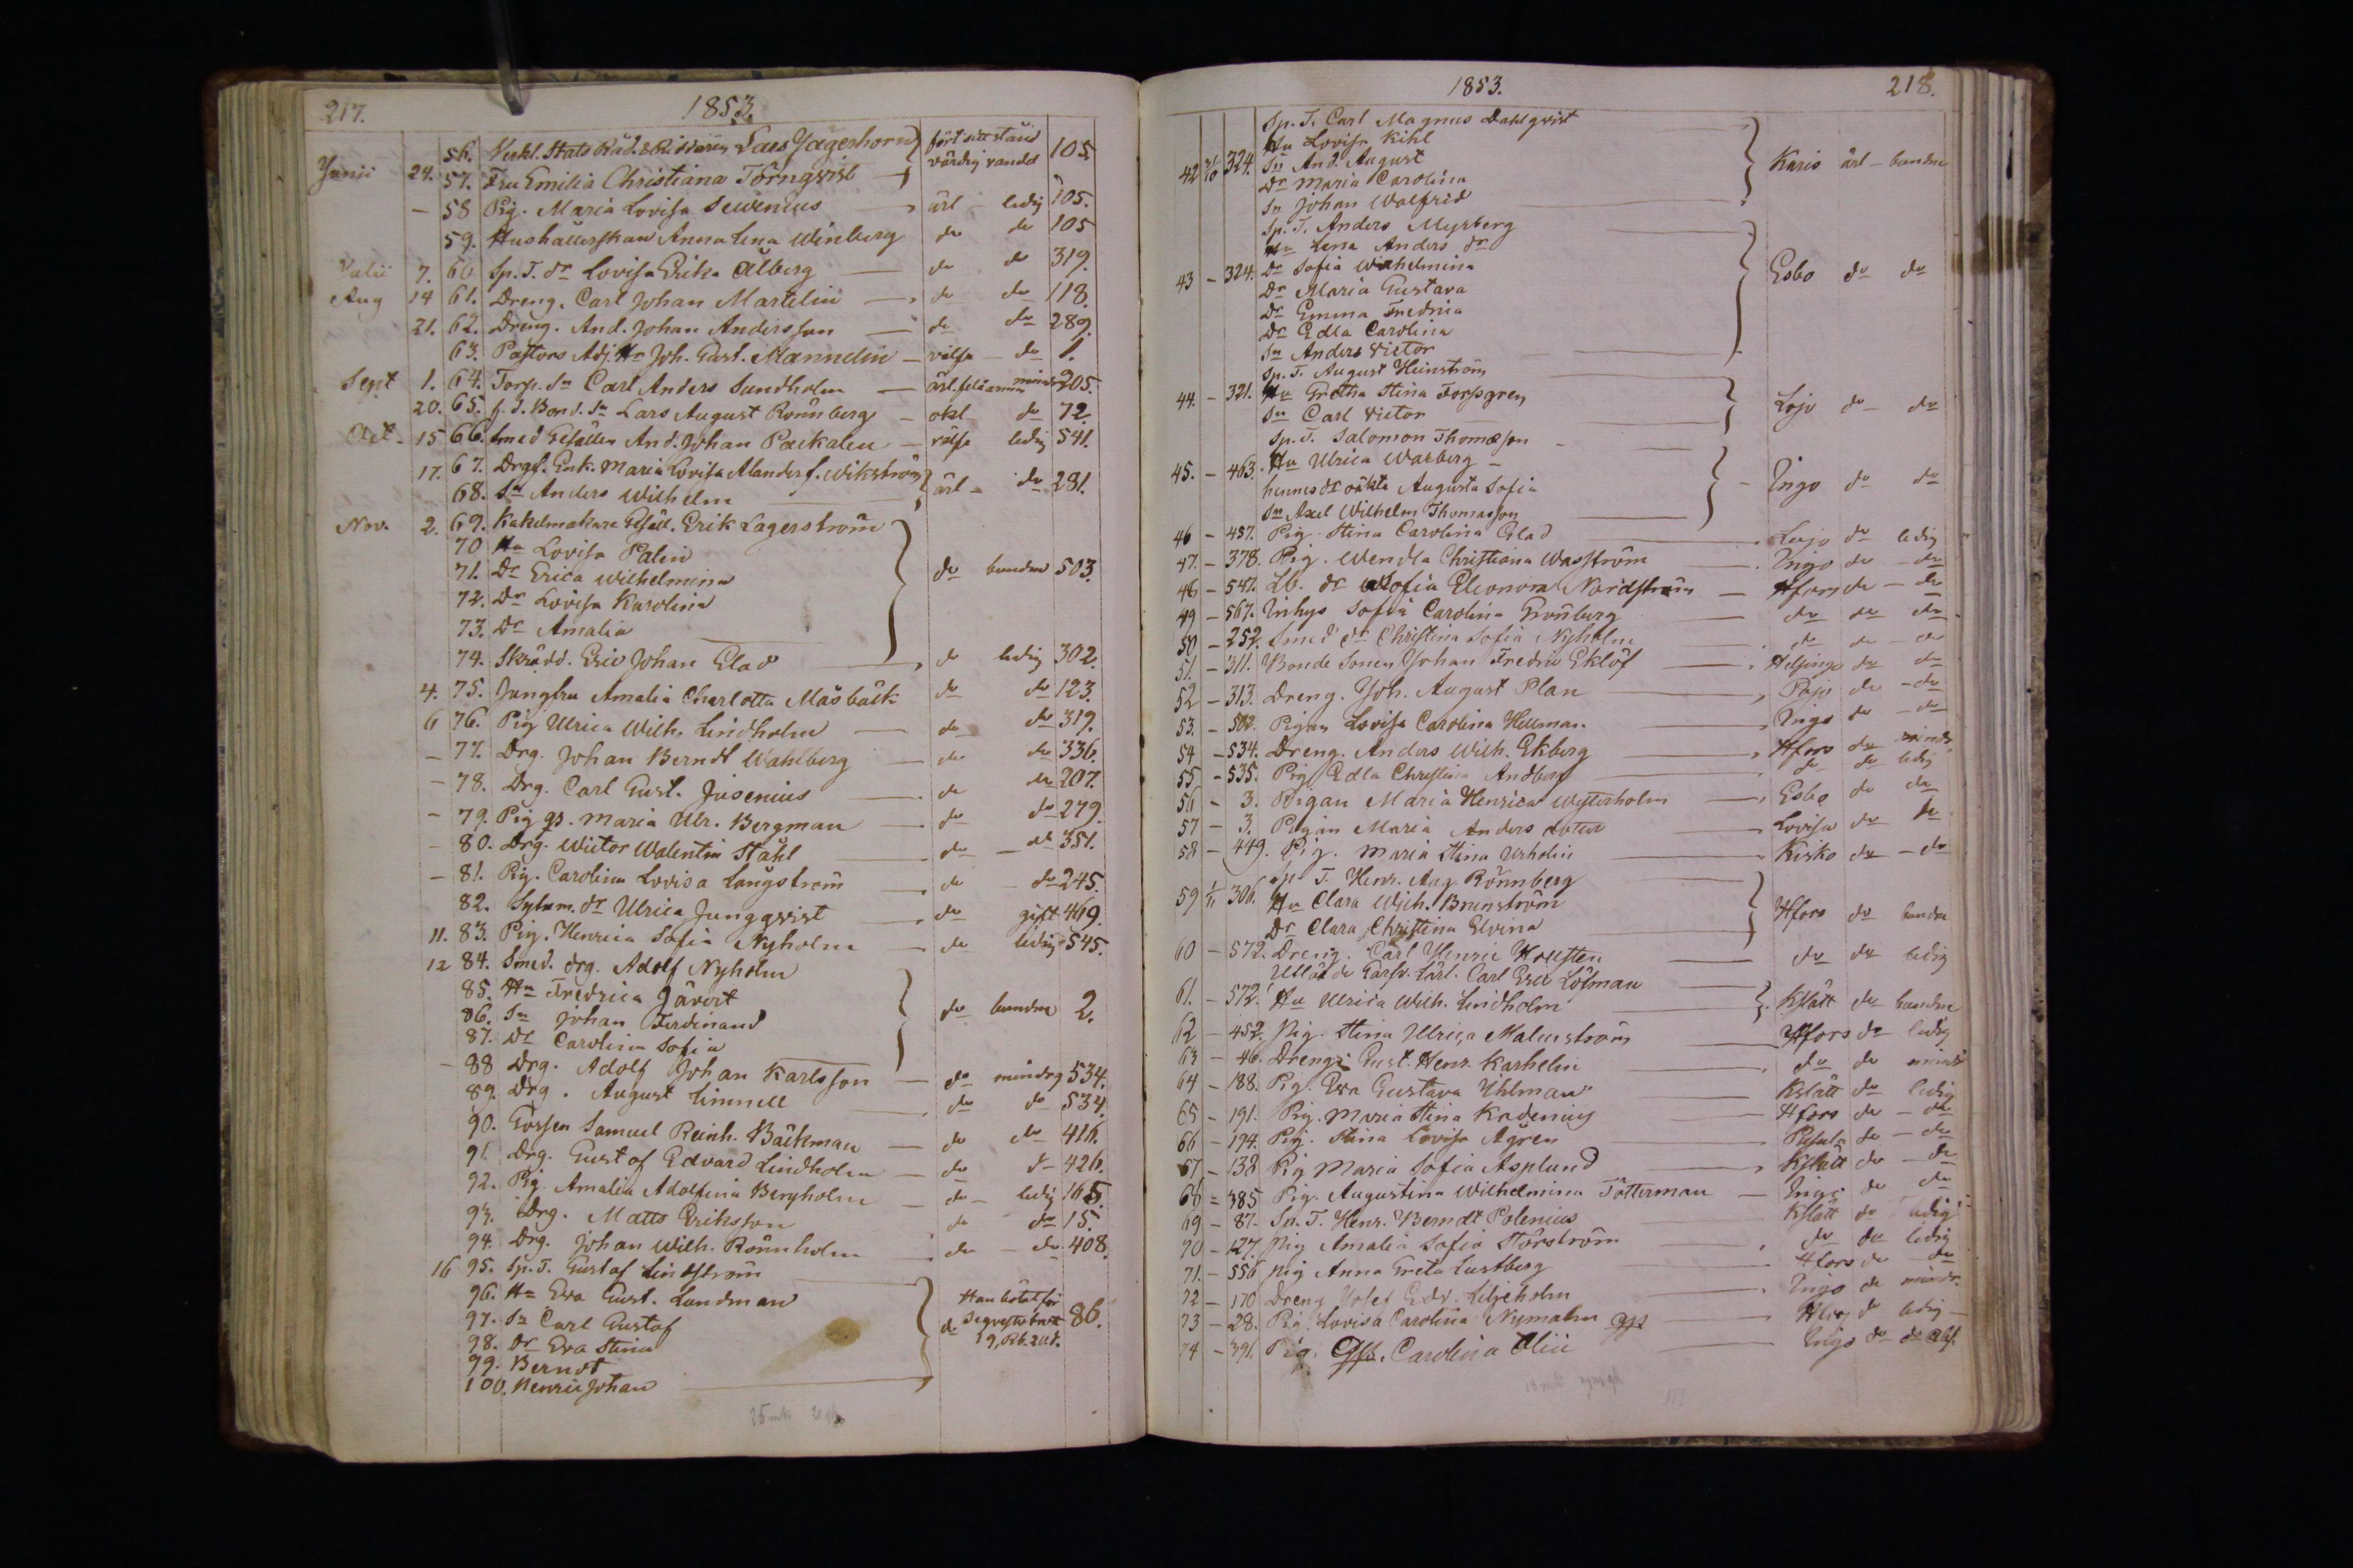 217. 1853.
56. Verkl. Stats Råd. & Riddaren Lars Jägerhorn fört sitt stånd
Junii 24. 57. Fru Emilia Christiana Törnqvist värdig vandel 105.
— 58 Pig. Maria Lovisa Sevenius ärl — ledig 105.
59. Hushållerskan Anna Lena Winberg do do 105
Julii 7. 60 Sp. T. dr Lovisa Erika Alberg do do 319.
Aug 14 61. Dreng. Carl Johan Martelin do do 118.
21. 62. Dreng. And. Johan Andersson do do 289.
63. Pastors Adj. Hr Joh. Gust. Mannelin — välfr — do 1.
Sept 1. 64. Torp. Sn Carl Anders Sundholm — ärl. 205.
20. 65. f. d. Bond. Sn Lars August Rönnberg — okl do 72.
Oct. 15 66. Smed Gesällen And. Johan Packalen — välfr ledig 541.
17. 67. Drgs. Enk. Maria Lovisa Alander f. Wikström
68. Sn Anders Wilhelm ärl — do 281.
Nov. 2. 69. Kakelmakare Gesäll. Erik Lagerström
70 Hu Lovisa Palin
71. Dr Erica Wilhelmina do bundne 503.
72. Dr Lovisa Karolina
73. Dr Amalia
74. Skrädd. Eric Johan Glad do ledig 302.
4. 75. Jungfru Amalia Charlotta Måsbäck do do 123.
6 76. Pig Ulrica Wilh. Lindholm do do 319.
— 77. Drg. Johan Berndt Wahlberg do do 336.
— 78. Drg. Carl Gust. Jusenius do do 207.
— 79. Pig gs. Maria Ulr. Bergman do do 279.
— 80. Drg. Wictor Walentin Ståhl do — do 351.
— 81. Pig. Carolina Lovisa Långström do — do 245.
82. Sytnm. dr Ulrica Jungqvist do gift 469.
11. 83. Pig. Henrica Sofia Nyholm do ledig 545.
12 84. Smed. drg. Adolf Nyholm
85. Hu Fredrica Järvert
86. Sn Johan Ferdinand do bundne 2.
87. Dr Carolina Sofia
— 88 Drg. Adolf Johan Karlsson — do mindrg 534.
89. Drg. August Limnell do do 534.
90. Gossen Samuel Reinh. Bäckman — do do 416.
91. Drg. Gustaf Edvard Lindholm — do do 426.
92. Pig. Amalia Adolfina Bergholm — do — ledig 165.
93. Drg. Matts Eriksson do do 15.
94. Drg. Johan Wilh. Rönnholm do — do 408.
16 95. Sp. T. Gustaf Lindström
96. Hu Eva Gust. Lundman Han bötat för
97. Sn Carl Gustaf do 86.
98. Dr Eva Stina
99. Berndt
100. Henric Johan
1853. 218.
Sp. T. Carl Magnus Dahlqvist
Hu Lovisa Kihl
42 31/10 324. Sn And. August Karis ärl — bundne
Dr Maria Carolina
Sn Johan Walfrid
Sp. T. Anders Myrberg
Hu Lena Anders dr
43 — 324. Dr Sofia Wilhelmina Esbo do do
Dr Maria Gustava
Dr Emma Fredrica
Dr Edla Carolina
Sn Anders Victor
Sp. T. August Heinström
44. — 321. Hu Gretha Stina Forssgren Lojo do — do
Sn Carl Victor
Sp. T. Salomon Thomasson
45. — 463. Hu Ulrica Warberg — Ingo do do
hennes dr oäkta Augusta Sofia
Sn Axel Wilhelm Thomasson
46 — 457. Pig. Stina Carolina Glad Lojo do ledig
47. — 378. Pig. Wendla Christiana Wasström Ingo do — do
48 — 547. Lb. dr Sofia Eleonora Nordström — Hfors do — do
49 — 567. Inhys Sofia Carolina Grönberg do do do
50 — 252. Smed dr Christina Sofia Nyholm do do — do
51. — 311. Bonde Sonen Johan Fredric Eklöf Helsinge do do
52 — 313. Dreng. Joh. August Plan Pojo do — do
53. — 502. Pigan Lovisa Carolina Hellman Ingo do — do
54 — 534. Dreng. Anders Wilh. Ekberg Hfors do mindr
55 — 535. Pig Edla Christina Andberg do do ledig
56 — 3. Pigan Maria Henrica Westerholm Esbo do do
57 — 3. Pigan Maria Anders dotter Lovisa do do
58 — 449. Pig. Maria Stina Urholin Kisko do — do
Sp. T. Henr. Aug. Rönnberg
59 1/11 306. Hu Clara Wilh. Brunström Hfors do bundne
Dr Clara Christina Elvina
60 — 572. Dreng. Carl Henric Hollsten do do ledig
Carl Eric Löfman
61. — 572. Hu Ulrica Wilh. Lindholm Kslätt do bundne
62 — 452. Pig. Stina Ulrica Malmström Hfors do ledig
63 — 46. Dreng. Gust. Henr. Karhelin do do mindr
64 — 188. Pig. Eva Gustava Uhlman Kslätt do ledig
65 — 191. Pig. Maria Stina Kadenius Hfors do — do
66 — 194. Pig. Stina Lovisa Ågren Pusula do — do
67 — 138 Pig Maria Sofia Asplund Kslätt do — do
68 — 385 Pig. Augustina Wilhelmina Fötterman — Ingo do do
69 — 87. Sp. T. Henr. Berndt Polenius Kslätt do ledig
70 — 127. Pig Amalia Sofia Storström do do ledig
71. — 556 Pig Anna Greta Lustberg Hfors do do
72 — 170 Dreng Josef Edv. Liljeholm Ingo do mindr.
73 — 28. Pig. Lovisa Carolina Nymalm Hfors do ledig —
74 — 391. Pig. Carolina Olin Ingo do do